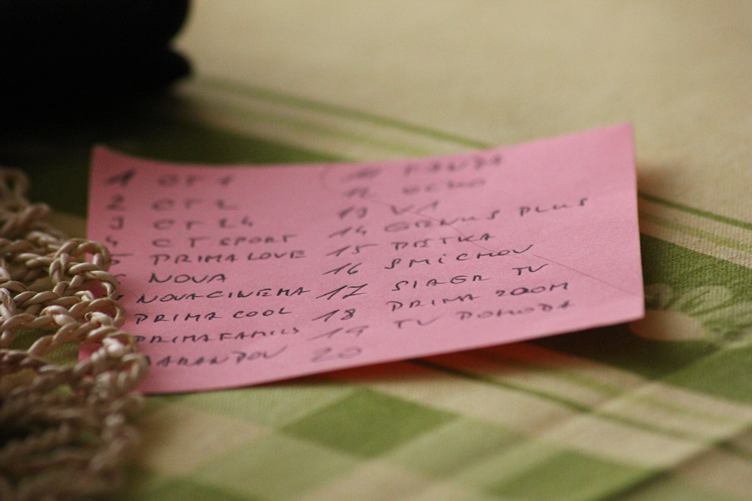 1 CT 1
2 CT 2
3 CT 24
4 CT SPORT
5 PRIMA LOVE
6 NOVA
NOVA CINEMA
PRIMA COOL
PRIMA FAMILY
BARANDOV
11 FANDA
12 DEMO
13 V1
14 GENUS PLUS
15 PĚTKA
16 SMÍCHOV
17 SLAGR TV
18 PRIMA ZOOM
19 TV POHODA
20